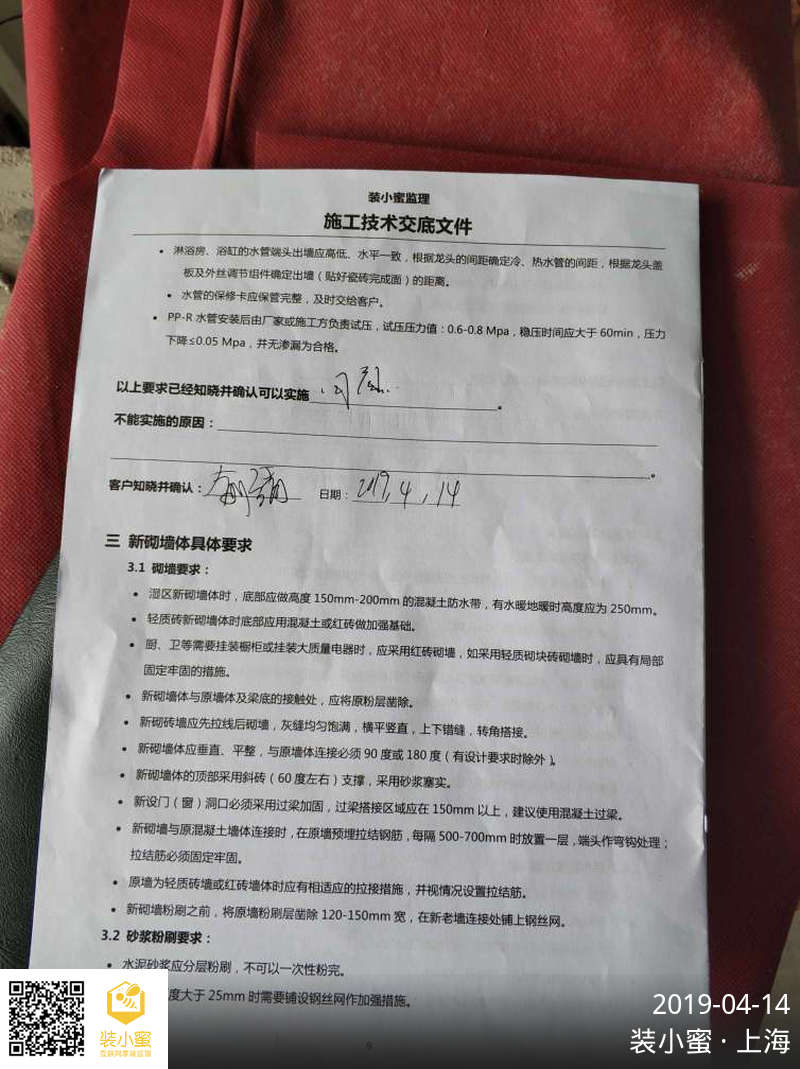 装小蜜监理
施工技术交底文件
• 淋浴房、浴缸的水管端头出墙应高低、水平一致，根据龙头的间距确定冷、热水管的间距，根据龙头盖
板及外丝调节组件确定出墙（贴好瓷砖完成面）的距离。
• 水管的保修卡应保管完整，及时交给客户。
• PP-R 水管安装后由厂家或施工方负责试压，试压压力值：0.6-0.8 Mpa，稳压时间应大于 60min，压力
下降≤0.05 Mpa，并无渗漏为合格。
以上要求已经知晓并确认可以实施
不能实施的原因：
客户知晓并确认： 日期：2019.4.14
三 新砌墙体具体要求
3.1 砌墙要求：
• 湿区新砌墙体时，底部应做高度 150mm-200mm 的混凝土防水带，有水暖地暖时高度应为 250mm。
• 轻质砖新砌墙体时底部应用混凝土或红砖做加强基础。
• 厨、卫等需要挂装橱柜或挂装大质量电器时，应采用红砖砌墙，如采用轻质砌块砖砌墙时，应具有局部
固定牢固的措施。
• 新砌墙体与原墙体及梁底的接触处，应将原粉层凿除。
• 新砌砖墙应先拉线后砌墙，灰缝均匀饱满，横平竖直，上下错缝，转角搭接。
• 新砌墙体应垂直、平整，与原墙体连接必须 90 度或 180 度（有设计要求时除外）。
• 新砌墙体的顶部采用斜砖（60 度左右）支撑，采用砂浆塞实。
• 新设门（窗）洞口必须采用过梁加固，过梁搭接区域应在 150mm 以上，建议使用混凝土过梁。
• 新砌墙与原混凝土墙体连接时，在原墙预埋拉结钢筋，每隔 500-700mm 时放置一层，端头作弯钩处理；
拉结筋必须固定牢固。
• 原墙为轻质砖墙或红砖墙体时应有相适应的拉接措施，并视情况设置拉结筋。
• 新砌墙粉刷之前，将原墙粉刷层凿除 120-150mm 宽，在新老墙连接处铺上钢丝网。
3.2 砂浆粉刷要求：
• 水泥砂浆应分层粉刷，不可以一次性粉完。
度大于 25mm 时需要铺设钢丝网作加强措施。
9
装小蜜
互联网家装监理
2019-04-14
装小蜜·上海